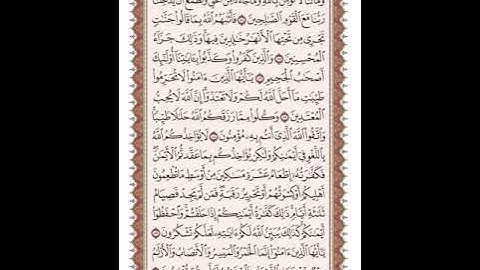 وَمَا لَنَا لَا نُؤْمِنُ بِاللَّهِ وَمَا جَاءَنَا مِنَ الْحَقِّ وَنَطْمَعُ أَن يُدْخِلَنَا
رَبُّنَا مَعَ الْقَوْمِ الصَّالِحِينَ ۝ فَأَثَابَهُمُ اللَّهُ بِمَا قَالُوا جَنَّاتٍ
تَجْرِي مِن تَحْتِهَا الْأَنْهَارُ خَالِدِينَ فِيهَا وَذَٰلِكَ جَزَاءُ
الْمُحْسِنِينَ ۝ وَالَّذِينَ كَفَرُوا وَكَذَّبُوا بِآيَاتِنَا أُولَٰئِكَ
أَصْحَابُ الْجَحِيمِ ۝ يَا أَيُّهَا الَّذِينَ آمَنُوا لَا تُحَرِّمُوا
طَيِّبَاتِ مَا أَحَلَّ اللَّهُ لَكُمْ وَلَا تَعْتَدُوا إِنَّ اللَّهَ لَا يُحِبُّ
الْمُعْتَدِينَ ۝ وَكُلُوا مِمَّا رَزَقَكُمُ اللَّهُ حَلَالًا طَيِّبًا
وَاتَّقُوا اللَّهَ الَّذِي أَنتُم بِهِ مُؤْمِنُونَ ۝ لَا يُؤَاخِذُكُمُ اللَّهُ
بِاللَّغْوِ فِي أَيْمَانِكُمْ وَلَٰكِن يُؤَاخِذُكُم بِمَا عَقَّدتُّمُ الْأَيْمَانَ
فَكَفَّارَتُهُ إِطْعَامُ عَشَرَةِ مَسَاكِينَ مِنْ أَوْسَطِ مَا تُطْعِمُونَ
أَهْلِيكُمْ أَوْ كِسْوَتُهُمْ أَوْ تَحْرِيرُ رَقَبَةٍ فَمَن لَّمْ يَجِدْ فَصِيَامُ
ثَلَاثَةِ أَيَّامٍ ذَٰلِكَ كَفَّارَةُ أَيْمَانِكُمْ إِذَا حَلَفْتُمْ وَاحْفَظُوا
أَيْمَانَكُمْ كَذَٰلِكَ يُبَيِّنُ اللَّهُ لَكُمْ آيَاتِهِ لَعَلَّكُمْ تَشْكُرُونَ ۝
يَا أَيُّهَا الَّذِينَ آمَنُوا إِنَّمَا الْخَمْرُ وَالْمَيْسِرُ وَالْأَنصَابُ وَالْأَزْلَامُ